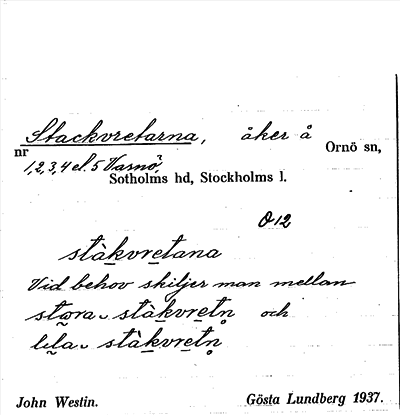 Stackvretarna, åker å
nr Ornö sn,
1, 2, 3, 4 el. 5 Varnö,
Sotholms hd, Stockholms l.
Ö 12
stàkvretana
Vid behov skiljer man mellan
stora stàkvretn och
lila stàkvretn
John Westin. Gösta Lundberg 1937.